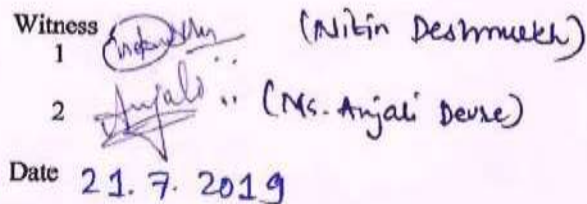 Witness
1 (Nitin Deshmukh)
2 Anjali (Ms. Anjali Deuse)
Date 21.7.2019